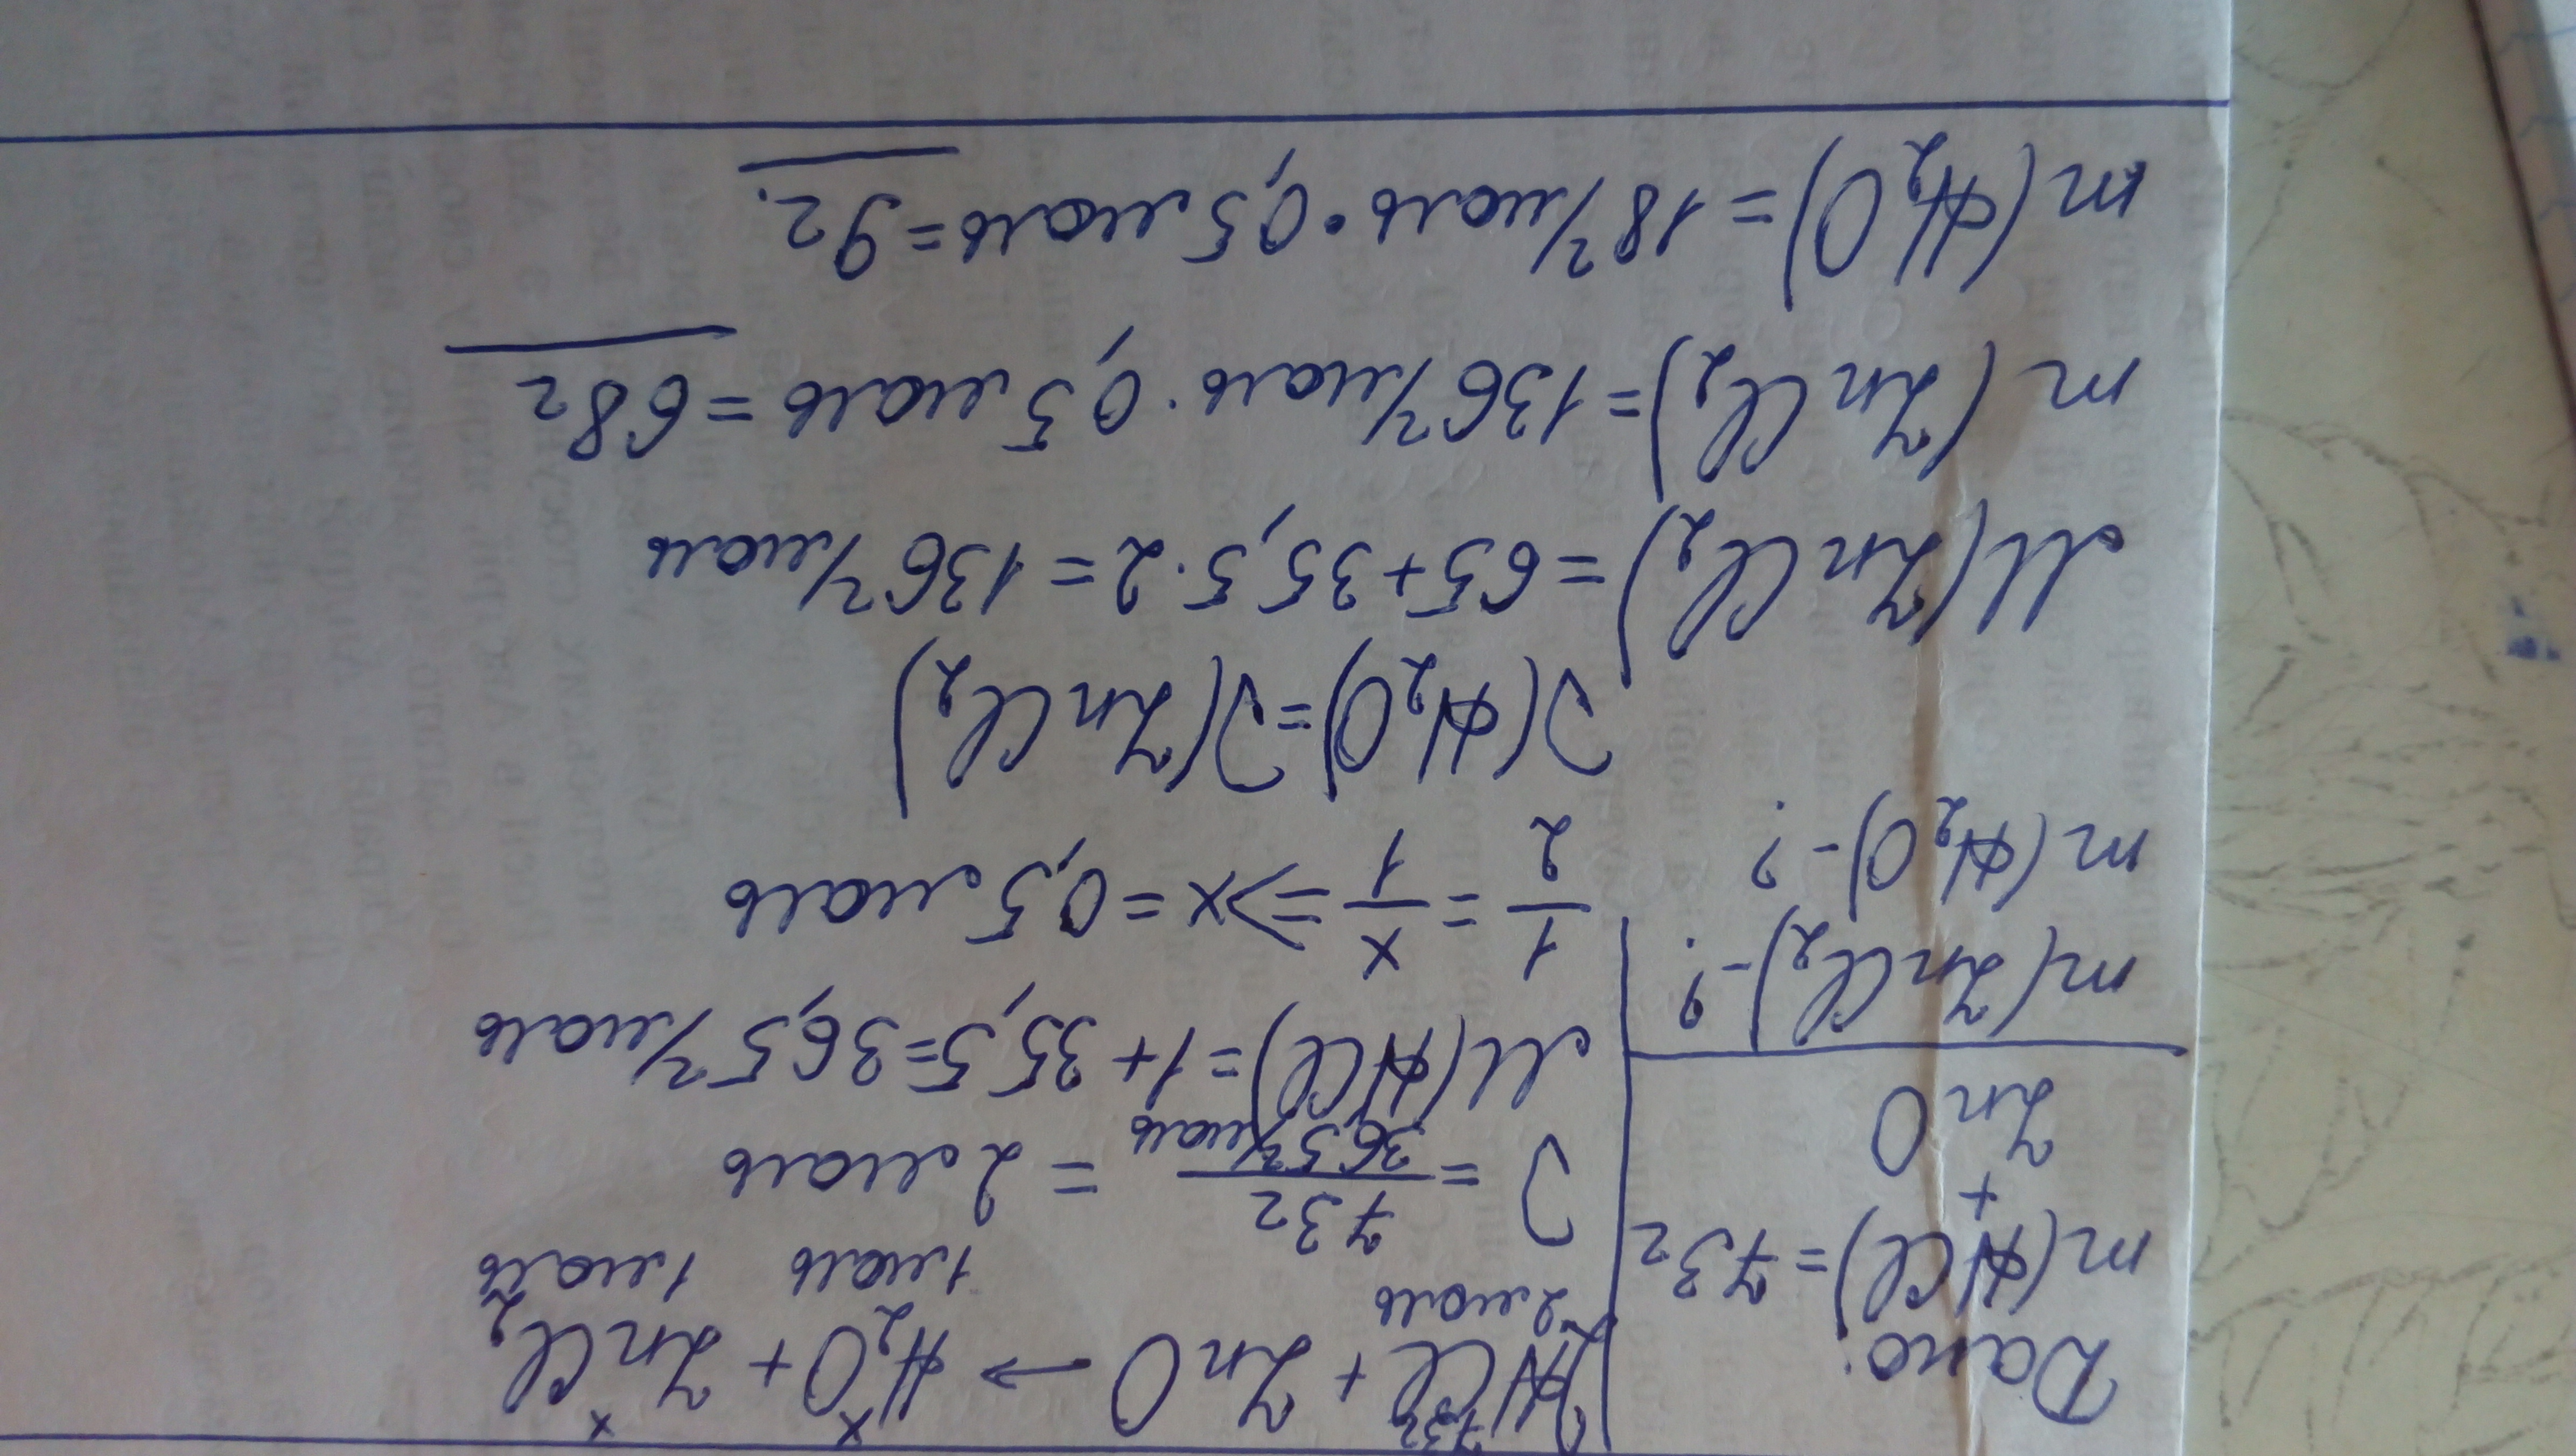 Дано:
m(HCl)=73г
+
ZnO
m(ZnCl2)-?
m(H2O)-?
73г x x
2HCl + ZnO → H2O + ZnCl2
2моль 1моль 1моль
ν = 73г / 36,5 г/моль = 2моль
M(HCl)=1+35,5=36,5 г/моль
1/2 = x/1 ⇒ x = 0,5 моль
ν(H2O)=ν(ZnCl2)
M(ZnCl2)=65+35,5·2=136 г/моль
m(ZnCl2)=136 г/моль·0,5 моль=68г
m(H2O)=18 г/моль·0,5 моль=9г.